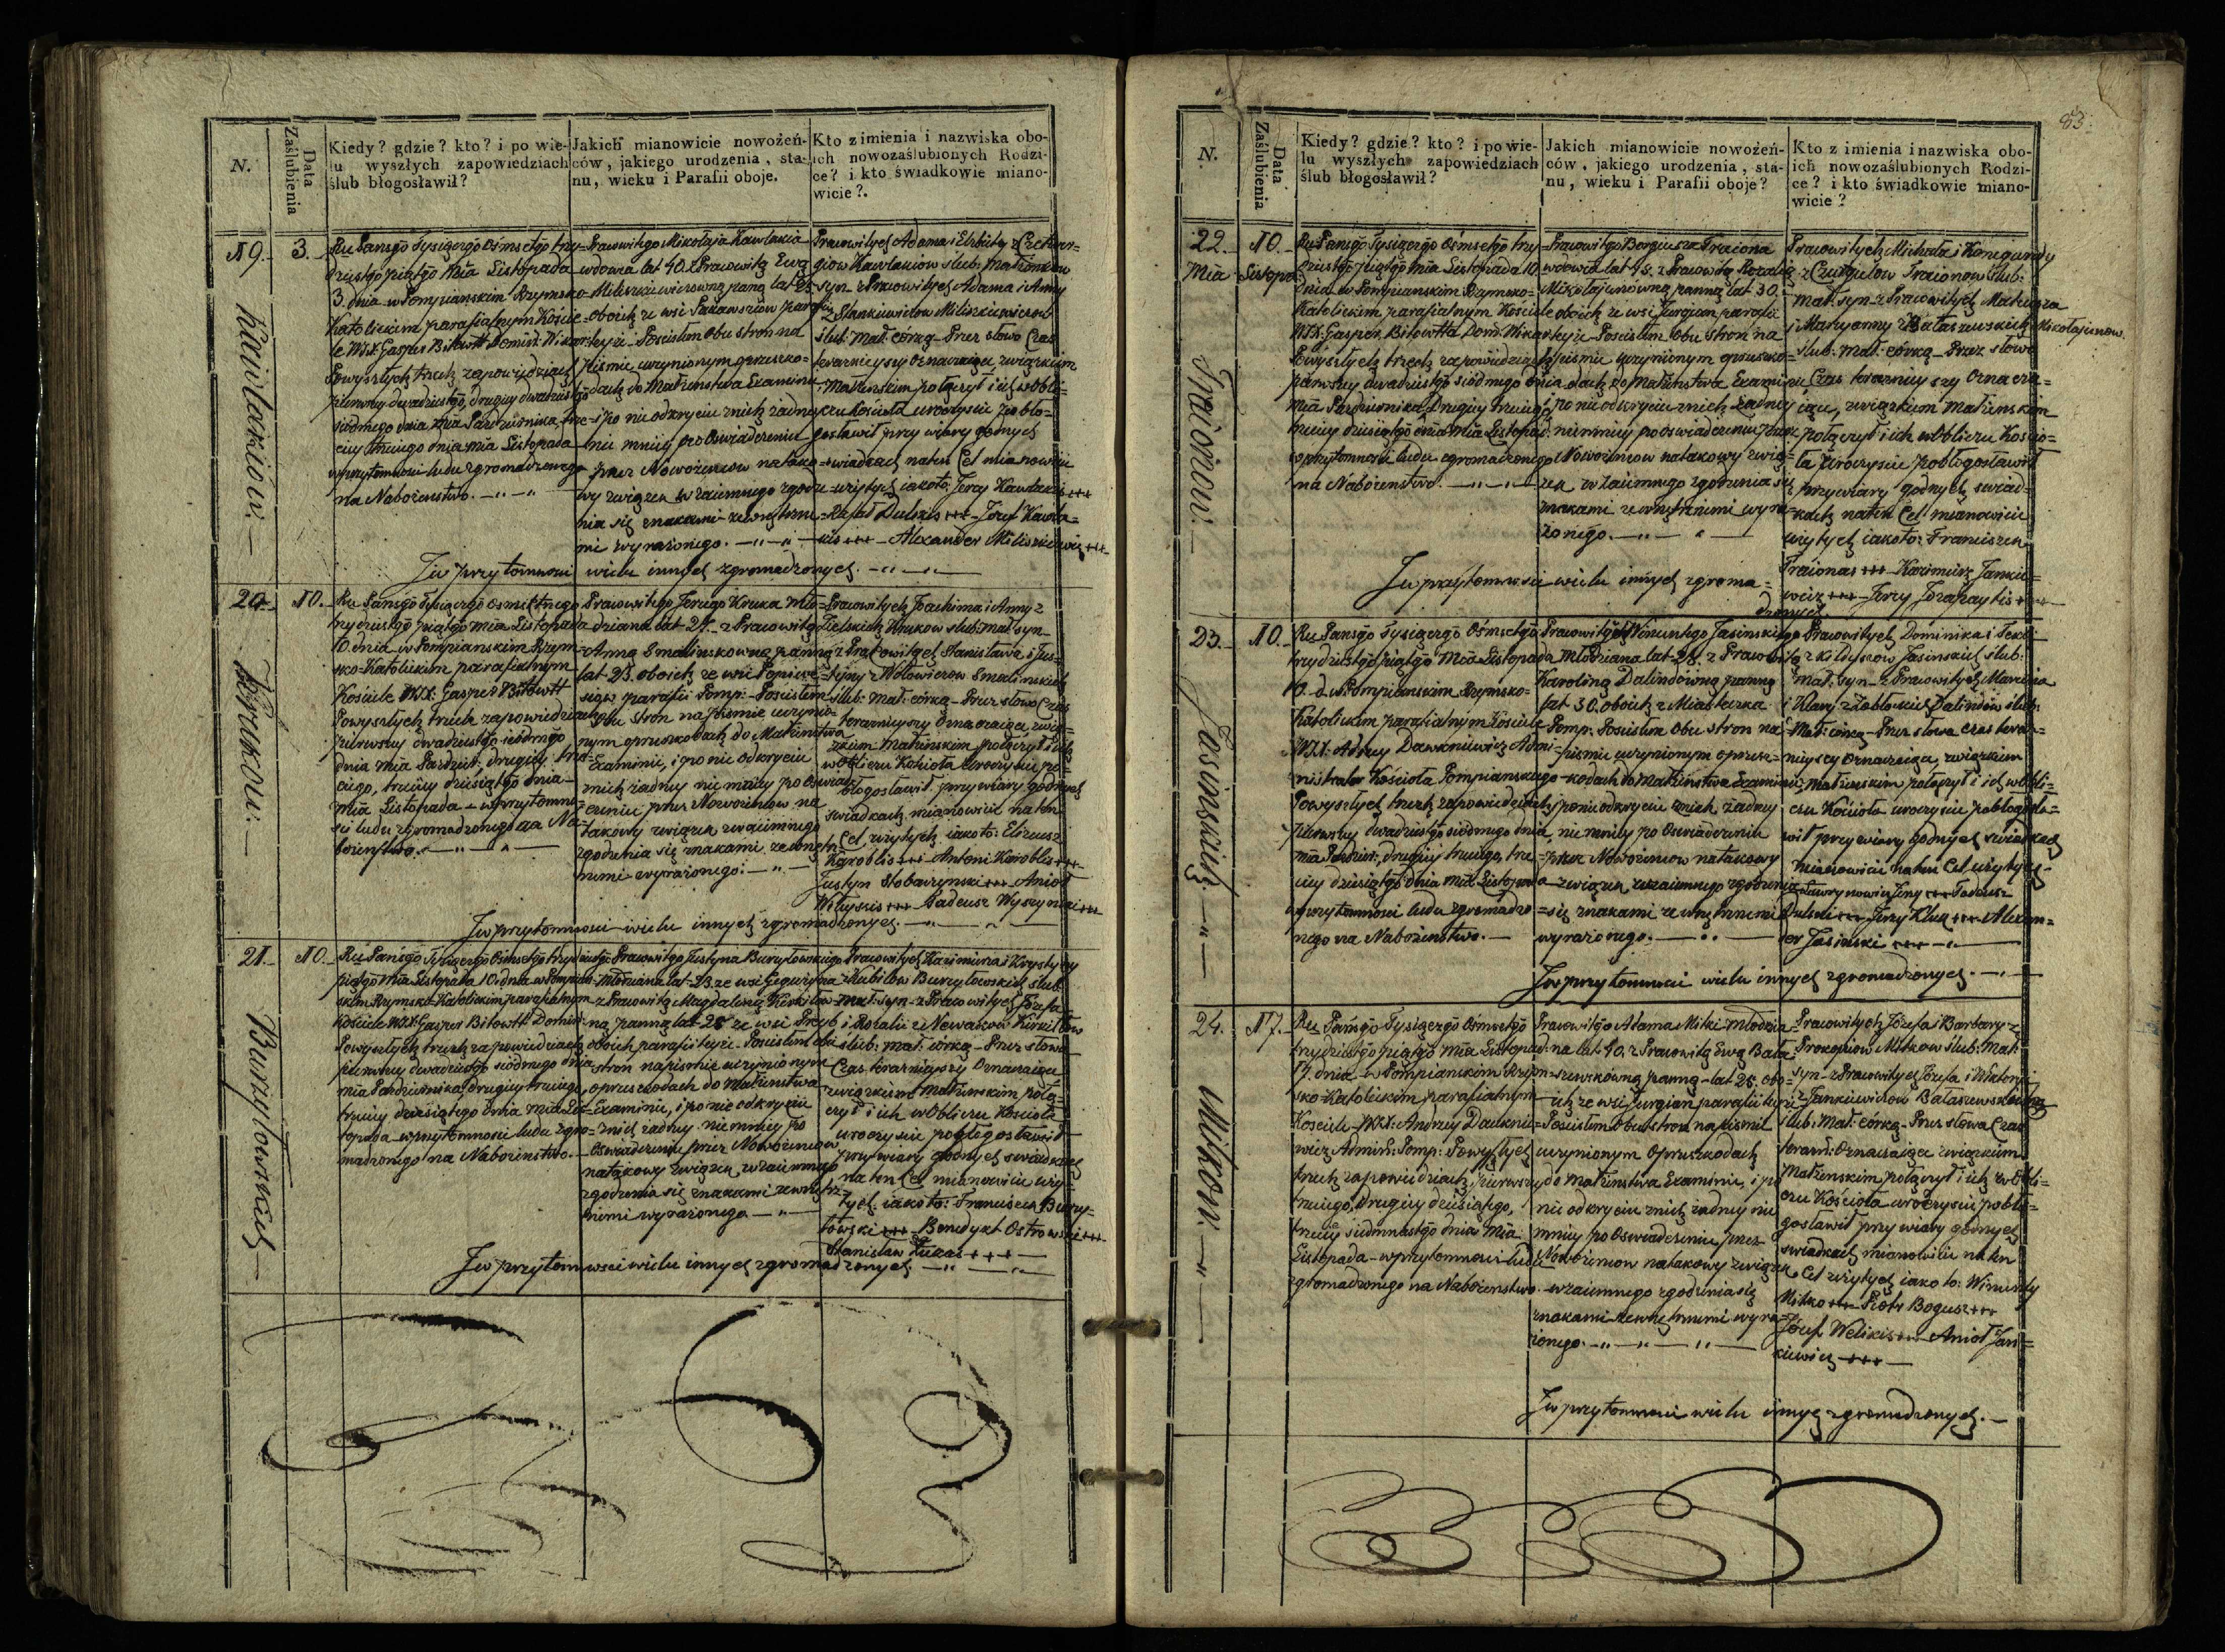 N.
Data Zaślubienia
Kiedy? gdzie? kto? i po wie-
lu wyszłych zapowiedziach
ślub błogosławił?
Jakich mianowicie nowożeń-
ców, jakiego urodzenia, sta-
nu, wieku i Parafii oboje.
Kto z imienia i nazwiska obo-
ich nowozaślubionych Rodzi-
ce? i kto świadkowie miano-
wicie?.
19.
3.
Kawlakiow.
Ru Pańsgo Tysiącego Osmsetgo trzy=
dziestgo piątgo Mia Listopada
3. dnia w Pompianskim Rzymsko=
Katolickim parafialnym Koscie=
le WJX. Gasper Bitowtt Domin: Wikar:
Powyszłych trzech zapowiedziach
pierwszey dwadziestgo, drugiey dwadziestgo
siodmego dnia Mia Pazdziernika, trze=
ciey trzeciego dnia mia Listopada
w przytomnosci ludu zgromadzonego
na Nabożenstwo.
Pracowitego Mikołaja Kawlakia
wdowca lat 40. z Pracowitą Ewą
Miliszkiewiczowną panną lat 23
oboich ze wsi parafii
teyże. Poscisłem Obu stron na
Pismie uczynionym oprzeszko=
dach do Małżenstwa Examinie
i po nie odkryciu znich żadney
nie mniey po Oswiadczeniu
przez Nowożeńcow na tako=
wy związek wzaiemnego zgodze=
nia się znakami zewnętrzne=
mi wyrażonego.
Pracowitych Adama i Elżbiety z
Kawlakiow slub: Małżonkow
syn z Pracowitych Adama i Anny
z Stankiewiczow Miliszkiewiczow
slub: Mał: córką Przez słowa Czas
terazniejszy Oznaczaiące, związkiem
Małżenskim połączył i ich w Obli=
czu Kościoła uroczyscie pobło=
gosławił przy wiary godnych
swiadkach na ten Cel mianowicie
użytych iako to: Jerzy Kawlakis +++
Rafał Dulskis +++ Jozef Kawla=
kis +++ Alexander Miliszkiewicz +++
J w przytomnosci wielu innych zgromadzonych.
20.
10.
Krukow.
Ru Pańsgo Tysiącego osmsetnego
trzydziestgo piątgo mia Listopada
10. dnia w Pompianskim Rzym=
sko-Katolickim parafialnym
Kosciele WJX: Gasper Bitowtt
Powyszłych trzech zapowiedziach
pierwszey dwadziestgo siodmgo
dnia mia Pazdzier: drugiey trze=
ciego, trzeciey dziesiątgo dnia
mia Listopada w przytomno=
sci ludu zgromadzonego na Na=
bożenstwo.
Pracowitego Jerzego Kruka Mło=
dziana lat 27. z Pracowitą
Anną Smalinskowną panną
lat 23. oboich ze wsi
parafii Pomp: Poscisłem
Obu stron na Pismie uczynio=
nym oprzeszkodach do Małżenstwa
Examinie, i po nie Odkryciu
znich żadney nie mniey po Oswiad=
czeniu przez Nowożeńcow na
takowy związek wzaiemnego
zgodzenia się znakami zewnętrz=
nemi wyrażonego.
Pracowitych Joachima i Anny z
Zielskich Krukow slub: mał: syn
z Pracowitych Stanisława i Jus=
tyny z Smalinskich
slub: mał: córką Przez słowa Czas
terazniejszy Oznaczaiące, zwią=
zkiem Małżenskim połączył i ich
w Obliczu Kościoła uroczyscie po=
błogosławił przy wiary godnych
swiadkach mianowicie na ten
Cel użytych iako to: Elizeusz
Karoblis +++ Antoni Karoblis +++
Justyn Stobarzynski +++ Anioł
+++ Tadeusz Wyszynski +++
J w przytomnosci wielu innych zgromadzonych.
21.
10.
Burzytowskich
Ru Pańsgo Tysiącego Osmsetgo trzydziestgo
piątgo Mia Listopada 10. dnia w Pompian=
skim Rzymsko-Katolickim parafialnym
Kosciele WJX: Gasper Bitowtt Domin:
Powyszłych trzech zapowiedziach
pierwszey dwadziestgo siodmego dnia
mia Pazdziernika, drugiey trzeciego,
trzeciey dziesiątego dnia mia Lis=
topada w przytomnosci ludu zgro=
madzonego na Nabożenstwo.
Pracowitego Justyna Burzytowskiego
Młodziana lat 23. ze wsi
z Pracowitą Magdaleną
panną lat 25 ze wsi
oboich parafii teyże. Poscisłem obu
stron na pismie uczynionym
oprzeszkodach do Małżenstwa
Examinie, i po nie odkryciu
znich żadney nie mniey po
Oswiadczeniu przez Nowożeńcow
na takowy związek wzaiemnego
zgodzenia się znakami zewnętrz=
nemi wyrażonego
Pracowitych Kazimierza i Krystyny
z Kubilow Burzytowskich slub:
mał: syn z Pracowitych Jozefa
i Rozalii z
slub: mał: córką Przez słowa
Czas terazniejszy Oznaczaiące
związkiem Małżenskim połą=
czył i ich w Obliczu Kościoła
uroczyscie pobłogosławił
przy wiary godnych swiadkach
na ten Cel mianowicie uży=
tych iako to: Franciszek Burzy=
towski +++ Benedykt Ostrowski +++
Stanisław +++
J w przytomnosci wielu innych zgromadzonych
83.
N.
Data Zaślubienia
Kiedy? gdzie? kto? i po wie-
lu wyszłych zapowiedziach
ślub błogosławił?
Jakich mianowicie nowożeń-
ców, jakiego urodzenia, sta-
nu, wieku i Parafii oboje?
Kto z imienia i nazwiska obo-
ich nowozaślubionych Rodzi-
ce? i kto świadkowie miano-
wicie?
22.
Mia
10.
Listopa:
Traionow.
Ru Pańsgo Tysiącego Osmsetgo trzy=
dziestgo piątgo mia Listopada 10.
dnia w Pompianskim Rzymsko=
Katolickim parafialnym Kosciele
WJX. Gasper Bitowtt Domi: Wikar:
Powyszłych trzech zapowiedziach
pierwszey dwadziestgo siodmego dnia
mia Pazdziernika, Drugiey trzeciego,
trzeciey dziesiątgo dnia Mia Listopad:
w przytomnosci ludu zgromadzonego
na Nabożenstwo.
Pracowitego Traiona
wdowca lat 45. z Pracowitą Rozalią
Mikołajunowną panną lat 30.
oboich ze wsi Jurgian parafii
teyże. Poscisłem Obu stron na
pismie uczynionym oprzeszko=
dach do Małżenstwa Examinie
i po nie odkryciu znich żadney
nie mniey po oswiadczeniu przez
Nowożeńcow na takowy zwią=
zek wzaiemnego zgodzenia się
znakami zewnętrznemi wyra=
żonego.
Pracowitych Michała i Konegundy
z Traionow slub:
mał: syn z Pracowitych Mateusza
i Maryanny z Bałaszewskich Mikołajunow
slub: mał: córką Przez słowa
Czas terazniejszy Oznacza=
iące, związkiem Małżenskim
połączył i ich w Obliczu Koscio=
ła uroczyscie pobłogosławił
przy wiary godnych swiad=
kach na ten Cel mianowicie
użytych iako to: Franciszek
Traionas +++ Kazimierz Jankie=
wicz +++ Jerzy +++
J w przytomnosci wielu innych zgroma=
dzonych
23.
10.
Jasinskich
Ru Pańsgo Tysiącego Osmsetgo
trzydziestgo piątgo Mia Listopada
10. d. w Pompianskim Rzymsko=
Katolickim parafialnym Kosciele
WJX: Adrzey Dawkniewicz Admi=
nistrator Kościoła Pompianskiego
Powyszłych trzech zapowiedziach
pierwszey dwadziestgo siodmego dnia
mia Pazdzier:, drugiey trzeciego, trze=
ciey dziesiątgo dnia mia Listopada
w przytomnosci ludu zgromadzo=
nego na Nabożenstwo.
Pracowitego Wincentego Jasinskiego
Młodziana lat 28. z Pracowitą
Karoliną Dalindowną panną
lat 30. oboich z Miasteczka
Pomp: Poscisłem Obu stron na
pismie uczynionym oprzesz=
kodach do Małżenstwa Examinie
i po nie odkryciu znich żadney
nie mniey po Oswiadczeniu
przez Nowożeńcow na takowy
związek wzaiemnego zgodzenia
się znakami zewnętrznemi
wyrażonego.
Pracowitych Dominika i Tekli
z Jasinskich slub:
mał: syn z Pracowitych Marcina
i Klary z Dalindow slub:
Mał: córką Przez słowa Czas teraz=
niejszy Oznaczaiące, związkiem
małżenskim połączył i ich w Obli=
czu Kościoła uroczyscie pobłogosła=
wił przy wiary godnych swiadkach
mianowicie na ten Cel użytych
Jerzy +++ Tadeusz
Dulski +++ Jerzy Kluk +++ Alexan=
der Jasinski +++
J w przytomnosci wielu innych zgromadzonych.
24.
17.
Mitkow.
Ru Pańsgo Tysiącego Osmsetgo
trzydziestgo piątgo Mia Listopad:
17. dnia w Pompianskim Rzym=
sko-Katolickim parafialnym
Kosciele WJX: Andrzey Dauknie=
wicz Admin: Pomp: Powyszłych
trzech zapowiedziach, pierwszey
trzeciego, drugiey dziesiątego,
trzeciey siedmnastgo dnia Mia
Listopada w przytomnosci ludu
zgromadzonego na Nabożenstwo.
Pracowitego Adama Mitki Młodzia=
na lat 40. z Pracowitą Ewą Bała=
szewskowną panną lat 25. obo=
ich ze wsi Jurgian parafii teyże
Poscisłem Obu stron na pismie
uczynionym Oprzeszkodach
do małżenstwa Examinie, i po
nie odkryciu znich żadney nie
mniey po Oswiadczeniu przez
Nowożeńcow na takowy związek
wzaiemnego zgodzenia się
znakami zewnętrznemi wyra=
żonego.
Pracowitych Jozefa i Barbary z
Prokopiow Mitkow slub: Mał:
syn z Pracowitych Jozefa i Wiktoryi
z Jankiewiczow Bałaszewskich
slub: Mał: córką Przez słowa Czas
terazn: Oznaczaiące związkiem
Małżenskim połączył i ich w Obli=
czu Kościoła uroczyscie pobło=
gosławił przy wiary godnych
swiadkach mianowicie na ten
Cel użytych iako to: Wincenty
Mitko +++ Piotr Bogusz +++
Jozef Welikis +++ Anioł Jan=
kiewicz +++
J w przytomnosci wielu innych zgromadzonych.